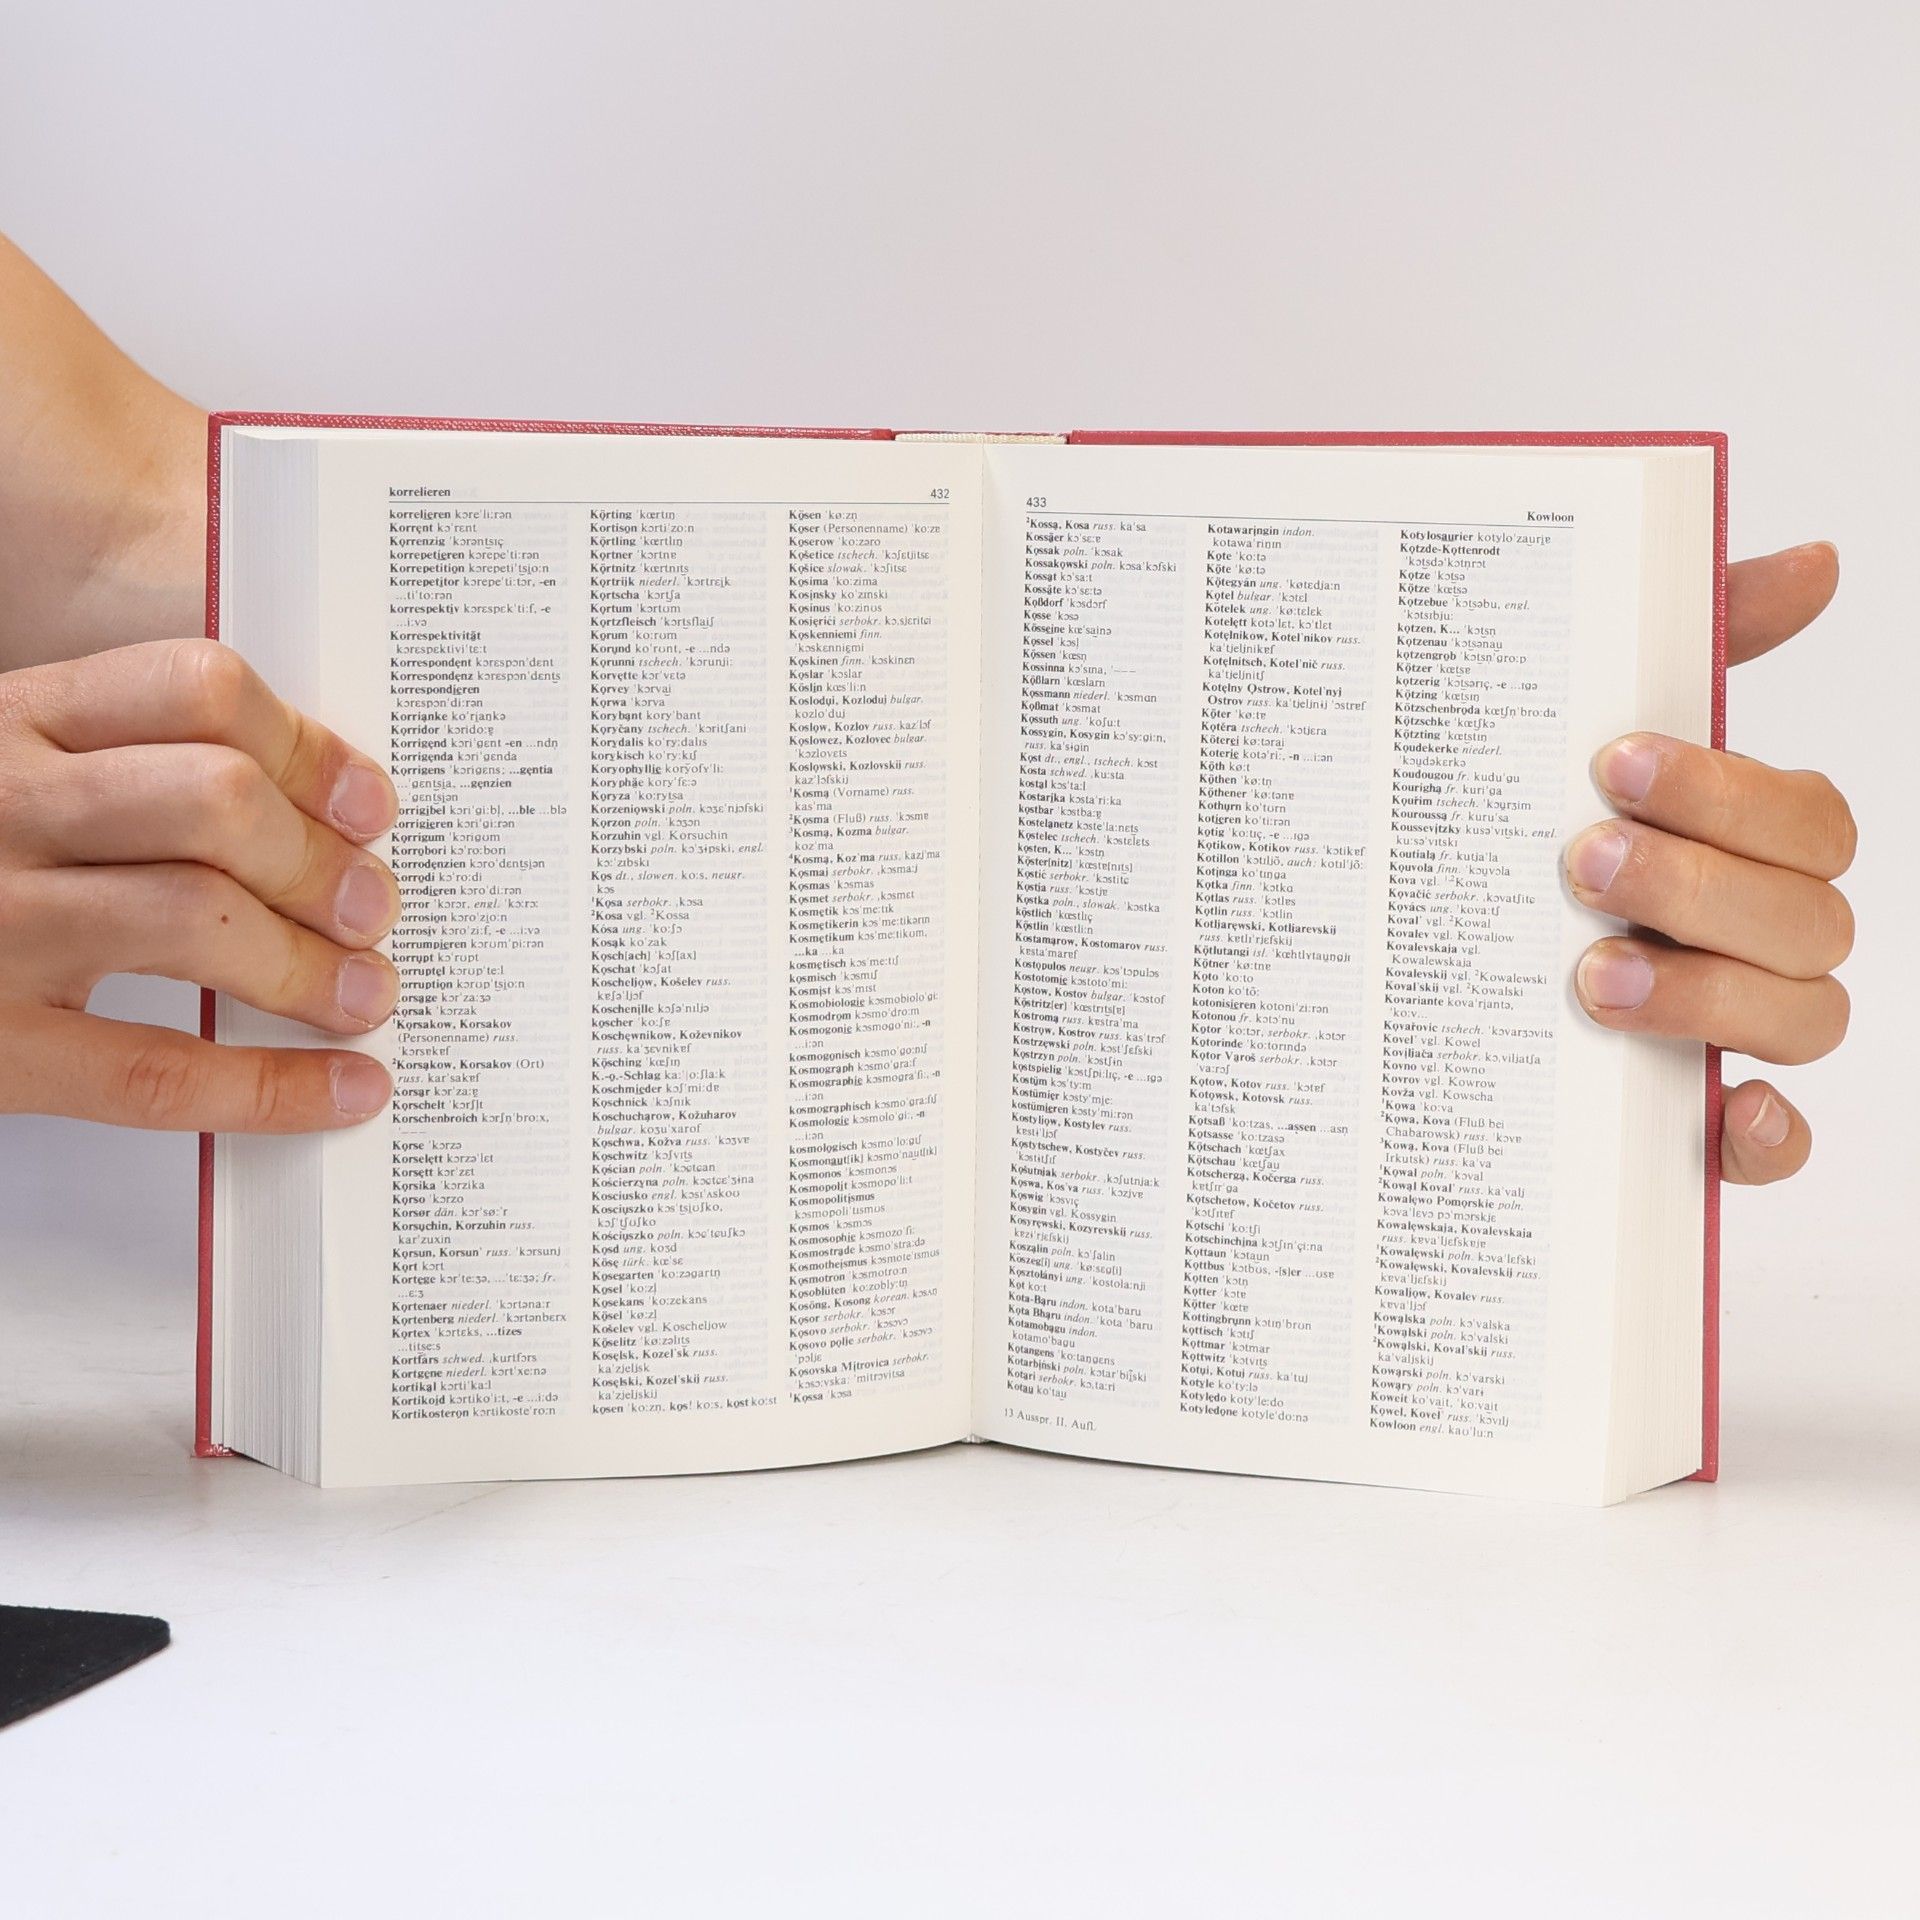 korrelieren
432
korrelieren kɔreˈliːrən
Korrent kɔˈrɛnt
Korrenzig ˈkɔrəntsɪç
korrepetieren kɔrepeˈtiːrən
Korrepetition kɔrepetiˈtsi̯oːn
Korrepetitor kɔrepeˈtiːtɔr, -en
...tiˈtoːrən
korrespektiv kɔrɛspɛkˈtiːf, -e
...iːvə
Korrespektivität
kɔrɛspɛktiviˈtɛːt
Korrespondent kɔrɛspɔnˈdɛnt
Korrespondenz kɔrɛspɔnˈdɛnts
korrespondieren
kɔrɛspɔnˈdiːrən
Korrianke koˈri̯aŋkə
Korridor ˈkɔridoːɐ̯
Korrigend kɔriˈgɛnt -en ...ndn̩
Korrigenda kɔriˈgɛnda
Korrigens ˈkɔrigɛns; ...gentia
...ˈgɛntsi̯a, ...genzien
...ˈgɛntsi̯ən
korrigibel kɔriˈgiːbl̩, ...ble ...blə
korrigieren kɔriˈgiːrən
Korrigum ˈkɔrigʊm
Korrobori kɔˈroːbori
Korrodenzien kɔroˈdɛntsi̯ən
Korrodi kɔˈroːdi
korrodieren kɔroˈdiːrən
Korrosion kɔroˈzi̯oːn
korrosiv kɔroˈziːf, -e ...iːvə
korrumpieren kɔrʊmˈpiːrən
korrupt kɔˈrʊpt
Korruptel kɔrʊpˈteːl
Korruption kɔrʊpˈtsi̯oːn
Korsage kɔrˈzaːʒə
Korsak ˈkɔrzak
¹Korsakow, Korsakov
(Personenname) russ.
ˈkɔrsɐkɐf
²Korsakow, Korsakov (Ort)
russ. karˈsakɐf
Korsar kɔrˈzaːɐ̯
Korschelt ˈkɔrʃl̩t
Korschenbroich kɔrʃn̩ˈbroːx,
ˈ–––
Korse ˈkɔrzə
Korselett kɔrzəˈlɛt
Korsett kɔrˈzɛt
Korsika ˈkɔrzika
Korso ˈkɔrzo
Korsør dän. kɔrˈsøːˀr
Korsuchin, Korzuhin russ.
karˈzuxin
Korsun, Korsunˈ russ. ˈkɔrsunj
Kort kɔrt
Kortege kɔrˈteːʒə, ...ˈtɛːʒə; fr.
...ɛːʒ
Kortenaer niederl. ˈkɔrtənaːr
Kortenberg niederl. ˈkɔrtənbɛrx
Kortex ˈkɔrtɛks, ...tizes
...titseːs
Kortfars schwed. ˌkurtfɔrs
Kortgene niederl. kɔrtˈxeːnə
kortikal kɔrtiˈkaːl
Kortikoid kɔrtikoˈiːt, -e ...iːdə
Kortikosteron kɔrtikosteˈroːn
Körting ˈkœrtɪŋ
Kortison kɔrtiˈzoːn
Körtling ˈkœrtlɪŋ
Kortner ˈkɔrtnɐ
Körtnitz ˈkœrtnɪts
Kortrijk niederl. ˈkɔrtrɛi̯k
Kortscha ˈkɔrtʃa
Kortum ˈkɔrtʊm
Kortzfleisch ˈkɔrtsflai̯ʃ
Korum ˈkoːrʊm
Korund koˈrʊnt, -e ...ndə
Korunni tschech. ˈkɔrunjiː
Korvette kɔrˈvɛtə
Korvey ˈkɔrvai
Korwa ˈkɔrva
Korybant koryˈbant
Koryčany tschech. ˈkɔritʃani
Korydalis koˈryːdalɪs
korykisch koˈryːkɪʃ
Koryophyllie korÿofʏˈliː
Koryphäe koryˈfɛːə
Koryza ˈkoːrytsa
Korzeniowski poln. kɔʒɛˈnjɔfski
Korzon poln. ˈkɔʒɔn
Korzuhin vgl. Korsuchin
Korzybski poln. kɔˈʒɨpski, engl.
kɔːˈzɪbski
Kos dt., slowen. koːs, neugr.
kɔs
¹Kosa serbokr. ˌkɔsa
²Kosa vgl. ²Kossa
Kósa ung. ˈkoːʃɔ
Kosak koˈzak
Kosch[ach] ˈkɔʃ[ax]
Koschat ˈkɔʃat
Koscheljow, Košelev russ.
kɐʃəˈljɔf
Koschenille kɔʃəˈnɪljə
koscher ˈkoːʃɐ
Koschewnikow, Koževnikov
russ. kaˈʒɛvnikɐf
Kösching ˈkœʃɪŋ
K.-o.-Schlag kaːˈ|oːʃlaːk
Koschmieder kɔʃˈmiːdɐ
Koschnick ˈkɔʃnɪk
Koschucharow, Kožuharov
bulgar. koʒuˈxarof
Koschwa, Kožva russ. ˈkɔʒvɐ
Koschwitz ˈkɔʃvɪts
Kościan poln. ˈkɔɕtɕan
Kościerzyna poln. kɔɕtɕɛˈʒina
Kosciusko engl. kɔsɪˈʌskoʊ
Kosciuszko kɔsˈtsi̯ʊʃko,
kɔʃˈtʃʊʃko
Kościuszko poln. kɔɕˈtɕuʃkɔ
Kosd ung. koʒd
Köse türk. kœˈsɛ
Kosegarten ˈkoːzəgartn̩
Kosel ˈkoːzl̩
Kosekans ˈkoːzekans
Kösel ˈkøːzl̩
Košelev vgl. Koscheljow
Köselitz ˈkøːzəlɪts
Koselsk, Kozelˈsk russ.
kaˈzjeljsk
Koselski, Kozelˈskij russ.
kaˈzjeljskij
kosen ˈkoːzn̩, kos! koːs, kost koːst
Kösen ˈkøːzn̩
Koser (Personenname) ˈkoːzɐ
Koserow ˈkoːzəro
Košetice tschech. ˈkɔʃɛtjitsɛ
Košice slowak. ˈkɔʃitsɛ
Kosima ˈkoːzima
Kosinsky koˈzɪnski
Kosinus ˈkoːzinʊs
Kosjerići serbokr. kɔˌsjɛritɕi
Koskenniemi finn.
ˈkɔskɛnniɛmi
Koskinen finn. ˈkɔskinɛn
Koslar ˈkɔslar
Köslin kœsˈliːn
Koslodui, Kozloduj bulgar.
kozloˈduj
Koslow, Kozlov russ. kazˈlɔf
Koslowez, Kozlovec bulgar.
ˈkɔzlovɛts
Koslowski, Kozlovskij russ.
kazˈlɔfskij
¹Kosma (Vorname) russ.
kasˈma
²Kosma (Fluß) russ. ˈkɔsmɐ
³Kosma, Kozma bulgar.
kozˈma
⁴Kosma, Kozˈma russ. kazjˈma
Kosmaj serbokr. ˌkɔsmaːj
Kosmas ˈkɔsmas
Kosmet serbokr. ˌkɔsmɛt
Kosmetik kɔsˈmeːtɪk
Kosmetikerin kɔsˈmeːtikərɪn
Kosmetikum kɔsˈmeːtikʊm,
...ka ...ka
kosmetisch kɔsˈmeːtɪʃ
kosmisch ˈkɔsmɪʃ
Kosmist kɔsˈmɪst
Kosmobiologie kɔsmobioloˈgiː
Kosmodrom kɔsmoˈdroːm
Kosmogonie kɔsmogoˈniː, -n
...iːən
kosmogonisch kɔsmoˈgoːnɪʃ
Kosmograph kɔsmoˈgraːf
Kosmographie kɔsmograˈfiː, -n
...iːən
kosmographisch kɔsmoˈgraːfɪʃ
Kosmologie kɔsmoloˈgiː, -n
...iːən
kosmologisch kɔsmoˈloːgɪʃ
Kosmonaut[ik] kɔsmoˈnau̯t[ɪk]
Kosmonos ˈkɔsmonɔs
Kosmopolit kɔsmopoˈliːt
Kosmopolitismus
kɔsmopoliˈtɪsmʊs
Kosmos ˈkɔsmɔs
Kosmosophie kɔsmozoˈfiː
Kosmostrade kɔsmoˈstraːdə
Kosmotheismus kɔsmoteˈɪsmʊs
Kosmotron ˈkɔsmotroːn
Kosoblüten ˈkoːzoblyːtn̩
Kosŏng, Kosong korean. kɔsʌŋ
Kosor serbokr. ˈkɔsɔr
Kosovo serbokr. ˈkɔsɔvɔ
Kosovo polje serbokr. ˈkɔsɔvɔ
ˈpɔljɛ
Kosovska Mitrovica serbokr.
ˈkɔsɔːvskaː ˈmitrɔvitsa
¹Kossa ˈkɔsa
433
Kowloon
²Kossa, Kosa russ. kaˈsa
Kossäer kɔˈsɛːɐ
Kossak poln. ˈkɔsak
Kossakowski poln. kɔsaˈkɔfski
Kossat kɔˈsaːt
Kossäte kɔˈsɛːtə
Koßdorf ˈkɔsdɔrf
Kosse ˈkɔsə
Kösseine kœˈsai̯nə
Kossel ˈkɔsl̩
Kössen ˈkœsn̩
Kossinna kɔˈsɪna, ˈ–––
Kößlarn ˈkœslarn
Kossmann niederl. ˈkɔsmɑn
Koßmat ˈkɔsmat
Kossuth ung. ˈkoʃuːt
Kossygin, Kosygin kɔˈsyːgiːn,
russ. kaˈsɨgin
Kost dt., engl., tschech. kɔst
Kosta schwed. ˌkuːsta
kostal kɔsˈtaːl
Kostarika kɔstaˈriːka
kostbar ˈkɔstbaːɐ̯
Kostelanetz kɔsteˈlaːnɛts
Kostelec tschech. ˈkɔstɛlɛts
kosten, K... ˈkɔstn̩
Köster[nitz] ˈkœstɐ[nɪts]
Kostić serbokr. ˈkɔstitɕ
Kostja russ. ˈkɔstjɐ
Kostka poln., slowak. ˈkɔstka
köstlich ˈkœstlɪç
Köstlin ˈkœstliːn
Kostomarow, Kostomarov russ.
kɐstaˈmarɐf
Kostopulos neugr. kɔsˈtɔpulɔs
Kostotomie kɔstotoˈmiː
Kostow, Kostov bulgar. ˈkɔstof
Köstritz[er] ˈkœstrɪts[ɐ]
Kostroma russ. kɐstraˈma
Kostrow, Kostrov russ. kasˈtrɔf
Kostrzewski poln. kɔstˈʃɛfski
Kostrzyn poln. ˈkɔstʃɨn
kostspielig ˈkɔstʃpiːlɪç, -e ...ɪgə
Kostüm kɔsˈtyːm
Kostümier kɔstyˈmi̯eː
kostümieren kɔstyˈmiːrən
Kostyljow, Kostylev russ.
kɐstɨˈljɔf
Kostytschew, Kostyčev russ.
ˈkɔstɨtʃɪf
Košutnjak serbokr. ˌkɔʃutnjaːk
Koswa, Kosˈva russ. ˈkɔzjvɐ
Koswig ˈkɔsvɪç
Kosygin vgl. Kossygin
Kosyrewski, Kozyrevskij russ.
kɐzɨˈrjɛfskij
Koszalin poln. kɔˈʃalin
Köszeg[i] ung. ˈkøːsɛg[i]
Kosztolányi ung. ˈkostolaːnji
Kot koːt
Kota-Baru indon. kɔtaˈbaru
Kota Bharu indon. ˈkota ˈbaru
Kotamobagu indon.
kotamoˈbagu
Kotangens ˈkoːtaŋgɛns
Kotarbiński poln. kɔtarˈbĩj̃ski
Kotari serbokr. kɔˌtaːri
Kotau koˈtau̯
13 Ausspr. II. Aufl.
Kotawaringin indon.
kotawaˈriŋin
Kote ˈkoːtə
Köte ˈkøːtə
Kötegyán ung. ˈkøtɛdjaːn
Kotel bulgar. ˈkɔtɛl
Kötelek ung. ˈkøːtɛlɛk
Kotelett kotəˈlɛt, kɔˈtlɛt
Kotelnikow, Kotelˈnikov russ.
kaˈtjeljnikɐf
Kotelnitsch, Kotelˈnič russ.
kaˈtjeljnitʃ
Kotelny Ostrow, Kotelˈnyj
Ostrov russ. kaˈtjeljnɨj ˈɔstrɐf
Köter ˈkøːtɐ
Kotěra tschech. ˈkɔtjɛra
Köterei ˈkøːtərai̯
Koterie kotəˈriː, -n ...iːən
Koth koːt
Köthen ˈkøːtn̩
Köthener ˈkøːtənɐ
Kothurn koˈtʊrn
kotieren koˈtiːrən
kotig ˈkoːtɪç, -e ...ɪgə
Kotikow, Kotikov russ. ˈkɔtikɐf
Kotillon ˈkɔtɪljõ, auch: kotɪlˈjõː
Kotinga koˈtɪŋga
Kotka finn. ˈkɔtkɑ
Kotlas russ. ˈkɔtlɐs
Kotlin russ. ˈkɔtlin
Kotljarewski, Kotljarevskij
russ. kɐtlɪˈrjɛfskij
Kötlutangi isl. ˈkœhtlʏtau̯ŋɟɪ
Kötner ˈkøːtnɐ
Koto ˈkoːto
Koton koˈtõː
kotonisieren kotoniˈziːrən
Kotonou fr. kɔtɔˈnu
Kotor ˈkoːtɔr, serbokr. ˌkɔtɔr
Kotorinde ˈkoːtɔrɪndə
Kotor Varoš serbokr. ˌkɔtɔr
ˈvaːrɔʃ
Kotow, Kotov russ. ˈkɔtɐf
Kotowsk, Kotovsk russ.
kaˈtɔfsk
Kotsaß ˈkoːtzas, ...assen ...asn̩
Kotsasse ˈkoːtzasə
Kötschach ˈkœtʃax
Kötschau ˈkœtʃau̯
Kotscherga, Kočerga russ.
kɐtʃɪrˈga
Kotschetow, Kočetov russ.
ˈkɔtʃɪtɐf
Kotschi ˈkoːtʃi
Kotschinchina kɔtʃɪnˈçiːna
Kottaun ˈkɔtau̯n
Kottbus ˈkɔtbʊs, -[s]er ...ʊsɐ
Kotten ˈkɔtn̩
Kotter ˈkɔtɐ
Kötter ˈkœtɐ
Kottingbrunn kɔtɪŋˈbrʊn
kottisch ˈkɔtɪʃ
Kottmar ˈkɔtmar
Kottwitz ˈkɔtvɪts
Kotui, Kotuj russ. kaˈtuj
Kotyle koˈtyːlə
Kotyledo kotyˈleːdo
Kotyledone kotyleˈdoːnə
Kotylosaurier kotyloˈzau̯ri̯ɐ
Kotzde-Kottenrodt
ˈkɔtsdəˈkɔtn̩rɔt
Kotze ˈkɔtsə
Kötze ˈkœtsə
Kotzebue ˈkɔtsəbu, engl.
ˈkɔtsɪbjuː
kotzen, K... ˈkɔtsn̩
Kotzenau ˈkɔtsənau̯
kotzengrob ˈkɔtsn̩ˈgroːp
Kötzer ˈkœtsɐ
kotzerig ˈkɔtsərɪç, -e ...ɪgə
Kötzing ˈkœtsɪŋ
Kötzschenbroda kœtʃn̩ˈbroːda
Kötzschke ˈkœtʃkə
Kötzting ˈkœtstɪŋ
Koudekerke niederl.
ˈkɔu̯dəkɛrkə
Koudougou fr. kuduˈgu
Kourigha fr. kuriˈga
Kouřim tschech. ˈkɔu̯rʒim
Kouroussa fr. kuruˈsa
Koussevitzky kusəˈvɪtski, engl.
kuːsəˈvɪtski
Koutiala fr. kutjaˈla
Kouvola finn. ˈkɔu̯vɔla
Kova vgl. ¹,²Kowa
Kovačić serbokr. ˌkɔvatʃitɕ
Kovács ung. ˈkovaːtʃ
Kovalˈ vgl. ²Kowal
Kovalev vgl. Kowaljow
Kovalevskaja vgl.
Kowalewskaja
Kovalevskij vgl. ²Kowalewski
Kovalˈskij vgl. ²Kowalski
Kovariante kovaˈri̯antə,
ˈkoːv...
Kovařovic tschech. ˈkɔvarʒɔvits
Kovelˈ vgl. Kowel
Koviljača serbokr. kɔˌviljatʃa
Kovno vgl. Kowno
Kovrov vgl. Kowrow
Kovža vgl. Kowscha
¹Kowa ˈkoːva
²Kowa, Kova (Fluß bei
Chabarowsk) russ. ˈkɔvɐ
³Kowa, Kova (Fluß bei
Irkutsk) russ. kaˈva
¹Kowal poln. ˈkɔval
²Kowal Kovalˈ russ. kaˈvalj
Kowalewo Pomorskie poln.
kɔvaˈlɛvɔ pɔˈmɔrskjɛ
Kowalewskaja, Kovalevskaja
russ. kɐvaˈljɛfskɐjɐ
¹Kowalewski poln. kɔvaˈlɛfski
²Kowalewski, Kovalevskij russ.
kɐvaˈljɛfskij
Kowaljow, Kovalev russ.
kɐvaˈljɔf
Kowalska poln. kɔˈvalska
¹Kowalski poln. kɔˈvalski
²Kowalski, Kovalˈskij russ.
kaˈvaljskij
Kowarski poln. kɔˈvarski
Kowary poln. kɔˈvarɨ
Koweit koˈvai̯t, ˈkoːvai̯t
Kowel, Kovelˈ russ. ˈkɔvɪlj
Kowloon engl. kaʊˈluːn